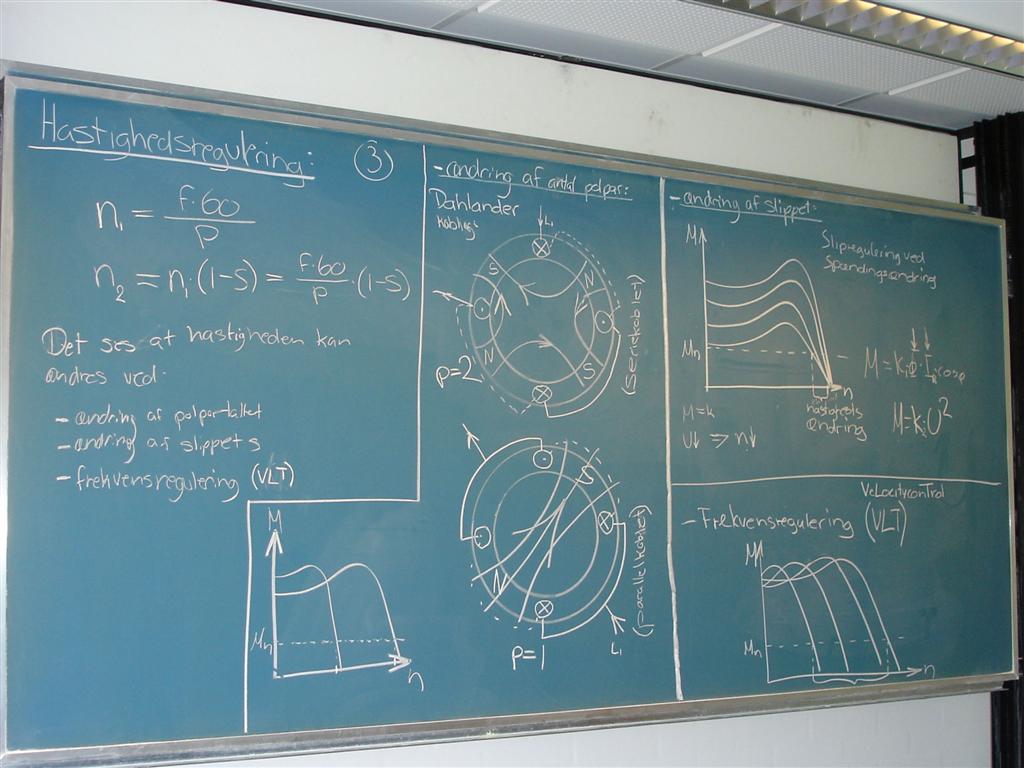 Hastighedsregulering:
3
n₁ = f·60 / p
n₂ = n₁·(1-s) = f·60 / p ·(1-s)
Det ses at hastigheden kan
ændres ved:
- ændring af polpartallet
- ændring af slippet s
- frekvensregulering (VLT)
M
Mn
n
- ændring af antal polpar:
Dahlander
kobling:
L₁
S
N
N
S
p=2
(Seriekoblet)
S
N
p=1
L₁
(parallelkoblet)
- ændring af slippet:
M
Slipregulering ved
Spændingsændring
Mn
n
hastigheds
ændring
M = k
U↓ ⇒ n↓
M = k₂U²
Velocitycontrol
- Frekvensregulering (VLT)
M
Mn
n